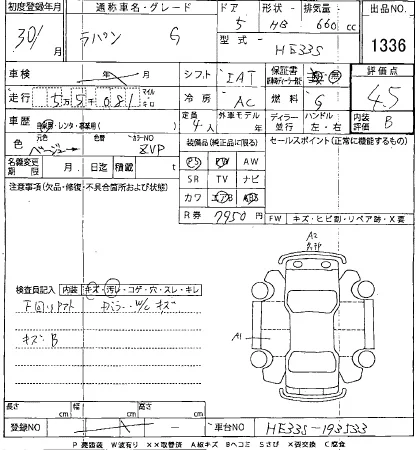 初度登録年月 通称車名・グレード ドア 形状 排気量 出品NO
30/ 月 ラパン G 5 HB 660 cc
型式 HE33S 1336
車検 年 月 シフト IAT 保証書 評価点
走行 5万9千081 マイル キロ 冷房 AC 燃料 G 4.5
車歴 自家用・レンタ・事業用 定員 4人 外車モデル ディーラー 並行 ハンドル 左・右 内装評価 B
色 元色 ベージュ 色替 カラーNO ZVP 装備品(純正品に限る) セールスポイント(正常に機能するもの)
PS PW AW
名義変更期限 月 日迄 積載 SR TV ナビ
注意事項(欠品・修復・不具合箇所および状態) カワ エアB ABS
R券 7950円 FW キズ・ヒビ割・リペア跡・X要
A2
検査員記入 内装 キズ・汚レ・コゲ・穴・スレ・キレ
W/C キズ
キズ・B
A1
長さ cm 幅 cm 高さ cm
登録NO 車台NO HE33S-193533
P 要塗装 W波有り XX取替済 A線キズ Bヘコミ Sさび X要交換 C腐食